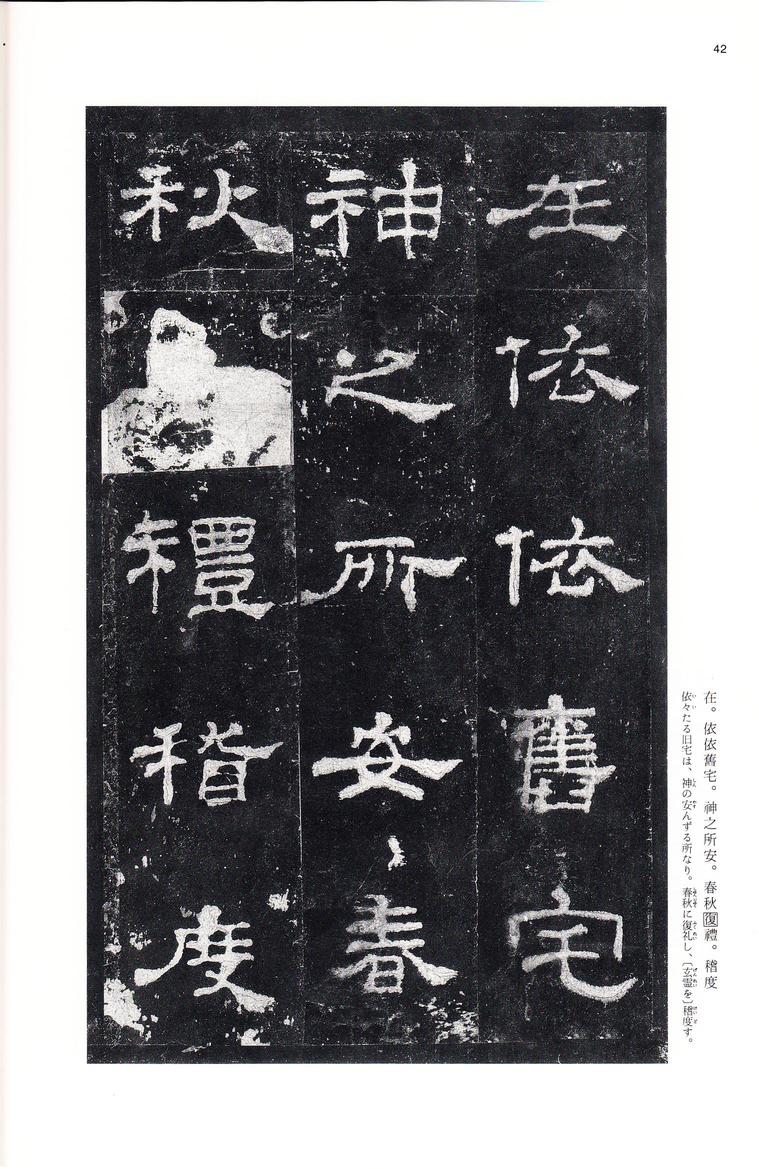 42
在依依舊宅
神之所安春
秋禮稽度
在。依依舊宅。神之所安。春秋復禮。稽度
依々たる旧宅は、神の安んずる所なり。春秋に復礼し、〔玄霊を〕稽度す。